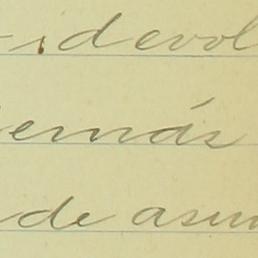 devol
emás
de asun